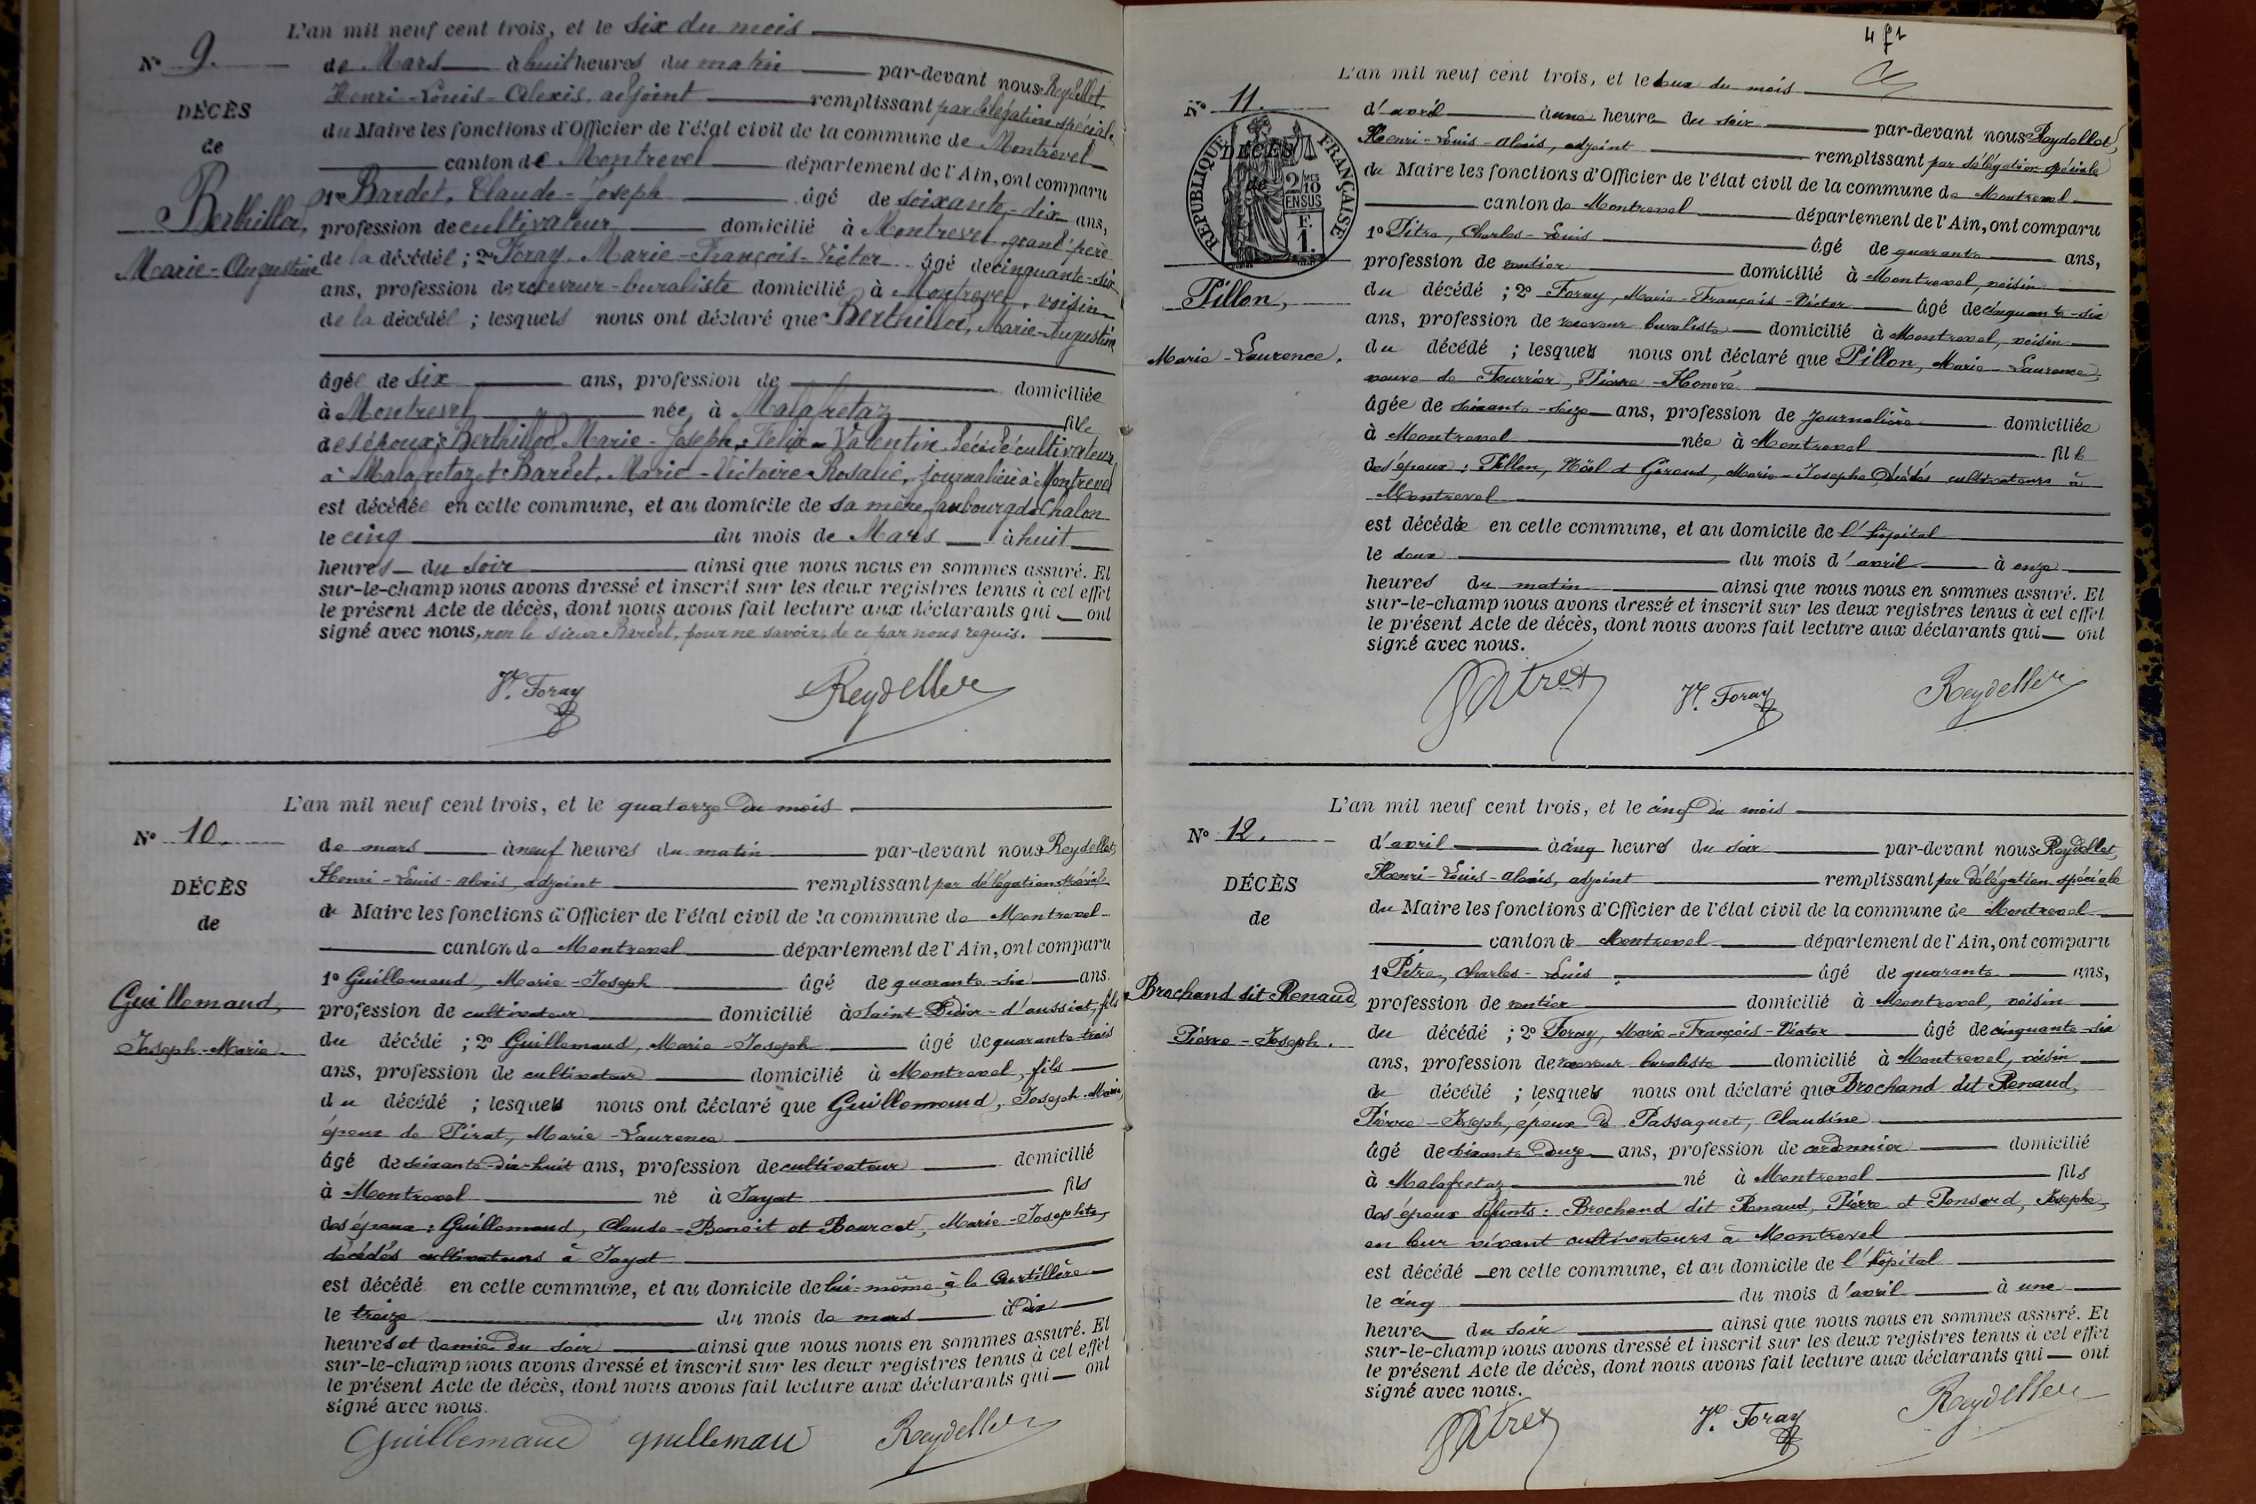 L'an mil neuf cent trois, et le six du mois
N° 9.
de Mars à huit heures du matin par-devant nous Reydellet
Henri-Louis-Alexis, adjoint remplissant par délégation spéciale
DÉCÈS
du Maire les fonctions d'Officier de l'état civil de la commune de Montrevel
de
canton de Montrevel département de l'Ain, ont comparu
1° Bardet, Claude-Joseph âgé de soixante-dix ans,
Berthillod,
profession de cultivateur domicilié à Montrevel, grand'père
Marie-Augustine
de la décédée ; 2° Foray, Marie-François-Victor âgé de cinquante-six
ans, profession de receveur-buraliste domicilié à Montrevel, voisin
de la décédée ; lesquels nous ont déclaré que Berthillod, Marie-Augustine
âgée de six ans, profession de domiciliée
à Montrevel née à Malafretaz fille
des époux : Berthillod, Marie-Joseph-Félix-Valentin, décédé cultivateur
à Malafretaz et Bardet, Marie-Victoire-Rosalie, journalière à Montrevel
est décédée en cette commune, et au domicile de sa mère, faubourg de Chalon
le cinq du mois de Mars à huit
heures du soir ainsi que nous nous en sommes assuré. Et
sur-le-champ nous avons dressé et inscrit sur les deux registres tenus à cet effet
le présent Acte de décès, dont nous avons fait lecture aux déclarants qui ont
signé avec nous, non le sieur Bardet, pour ne savoir, de ce par nous requis.
Vr. Foray Reydellet
L'an mil neuf cent trois, et le quatorze du mois
N° 10.
de mars à neuf heures du matin par-devant nous Reydellet,
Henri-Louis-alexis, adjoint remplissant par délégation spéciale
DÉCÈS
du Maire les fonctions d'Officier de l'état civil de la commune de Montrevel
de
canton de Montrevel département de l'Ain, ont comparu
1° Guillemaud, Marie-Joseph âgé de quarante-six ans,
Guillemaud,
profession de cultivateur domicilié à Saint-Didier-d'aussiat, fils
Joseph-Marie
du décédé ; 2° Guillemaud, Marie-Joseph âgé de quarante-trois
ans, profession de cultivateur domicilié à Montrevel, fils
du décédé ; lesquels nous ont déclaré que Guillemaud, Joseph-Marie,
époux de Pirat, Marie-Laurence
âgé de soixante-dix-huit ans, profession de cultivateur domicilié
à Montrevel né à Jayat fils
des époux : Guillemaud, Claude-Benoit et Bourcet, Marie-Josephte,
décédés cultivateurs à Jayat
est décédé en cette commune, et au domicile de lui-même, à la Curtillère
le treize du mois de mars à dix
heures et demie du soir ainsi que nous nous en sommes assuré. Et
sur-le-champ nous avons dressé et inscrit sur les deux registres tenus à cet effet
le présent Acte de décès, dont nous avons fait lecture aux déclarants qui ont
signé avec nous.
Guillemaud guillemau Reydellet
L'an mil neuf cent trois, et le deux du mois
N° 11.
d'avril à une heure du soir par-devant nous Reydellet,
Henri-Louis-alexis, adjoint remplissant par délégation spéciale
DÉCÈS
de
RÉPUBLIQUE FRANÇAISE
2/10 MES EN SUS
F. 1.
du Maire les fonctions d'Officier de l'état civil de la commune de Montrevel
canton de Montrevel département de l'Ain, ont comparu
1° Pitre, Charles-Louis âgé de quarante ans,
profession de rentier domicilié à Montrevel, voisin
Pillon,
du décédé ; 2° Foray, Marie-François-Victor âgé de cinquante-six
ans, profession de receveur buraliste domicilié à Montrevel, voisin
Marie-Laurence.
du décédé ; lesquels nous ont déclaré que Pillon, Marie-Laurence,
veuve de Feurrier, Pierre-Honoré
âgée de soixante-seize ans, profession de journalière domiciliée
à Montrevel née à Montrevel fille
des époux : Pillon, Noël et Giroud, Marie-Josephe, décédés cultivateurs à
Montrevel
est décédée en cette commune, et au domicile de l'hôpital
le deux du mois d'avril à onze
heures du matin ainsi que nous nous en sommes assuré. Et
sur-le-champ nous avons dressé et inscrit sur les deux registres tenus à cet effet
le présent Acte de décès, dont nous avons fait lecture aux déclarants qui ont
signé avec nous.
Vr. Foray Reydellet
L'an mil neuf cent trois, et le cinq du mois
N° 12.
d'avril à cinq heures du soir par-devant nous Reydellet,
Henri-Louis-alexis, adjoint remplissant par délégation spéciale
DÉCÈS
du Maire les fonctions d'Officier de l'état civil de la commune de Montrevel
de
canton de Montrevel département de l'Ain, ont comparu
1° Pitre, Charles-Louis âgé de quarante ans,
Brochand dit Renaud,
profession de rentier domicilié à Montrevel, voisin
Pierre-Joseph.
du décédé ; 2° Foray, Marie-François-Victor âgé de cinquante-six
ans, profession de receveur buraliste domicilié à Montrevel, voisin
du décédé ; lesquels nous ont déclaré que Brochand dit Renaud,
Pierre-Joseph, époux de Passaquet, Claudine
âgé de soixante-douze ans, profession de cordonnier domicilié
à Malafretaz né à Montrevel fils
des époux défunts : Brochand dit Renaud, Pierre et Ponsard, Josephe,
en leur vivant cultivateurs à Montrevel
est décédé en cette commune, et au domicile de l'hôpital
le cinq du mois d'avril à une
heure du soir ainsi que nous nous en sommes assuré. Et
sur-le-champ nous avons dressé et inscrit sur les deux registres tenus à cet effet
le présent Acte de décès, dont nous avons fait lecture aux déclarants qui ont
signé avec nous.
Vr. Foray Reydellet